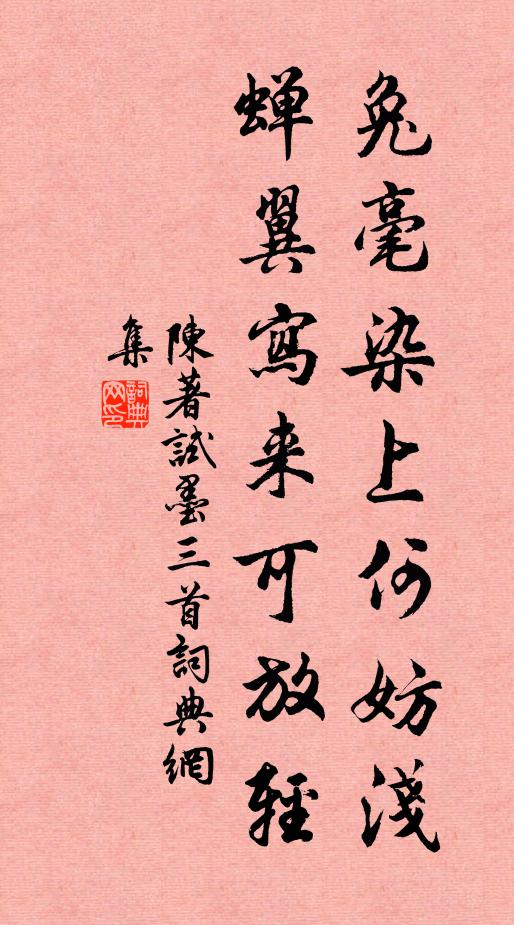 兔毫染上何妨淺
蟬翼寫来可放輕
陳著試墨三首詞典網
集
詞典網印